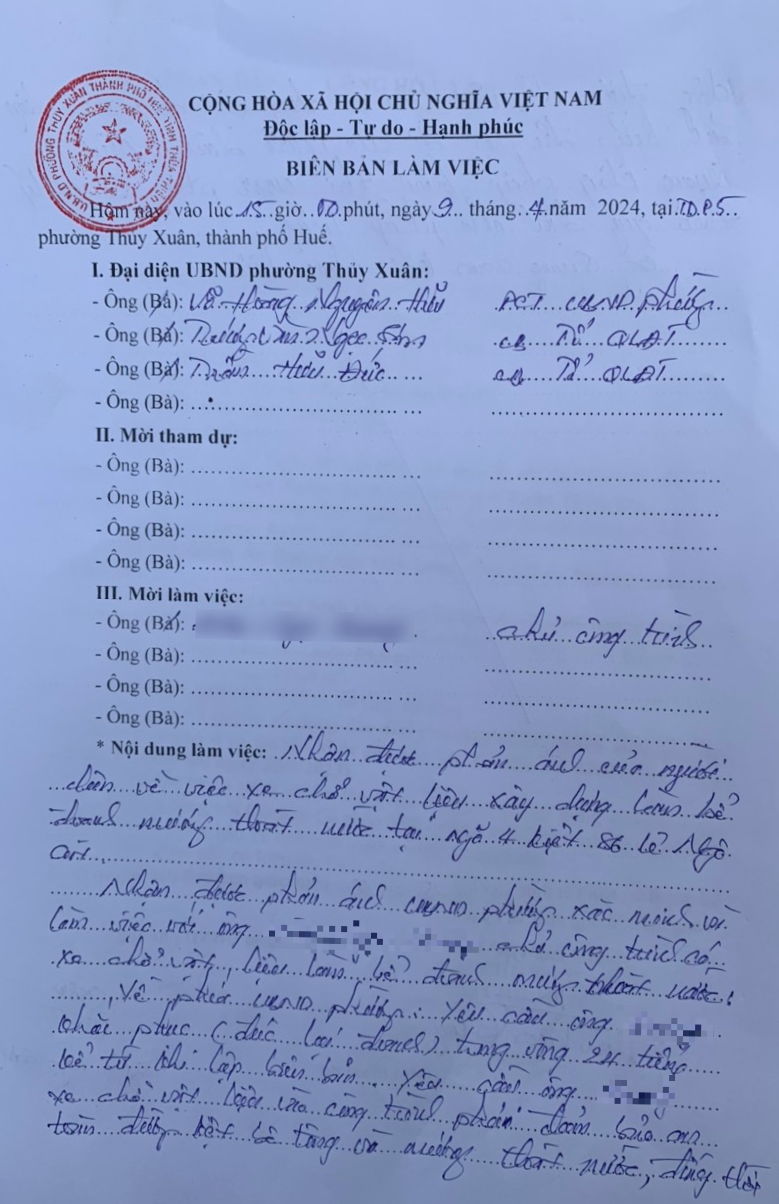 U.B.N.D PHƯỜNG THỦY XUÂN THÀNH PHỐ HUẾ TỈNH THỪA THIÊN
CỘNG HÒA XÃ HỘI CHỦ NGHĨA VIỆT NAM
Độc lập - Tự do - Hạnh phúc
BIÊN BẢN LÀM VIỆC
Hôm nay, vào lúc 15 giờ 00 phút, ngày 9 tháng 4 năm 2024, tại TDP.5
phường Thủy Xuân, thành phố Huế.
I. Đại diện UBND phường Thủy Xuân:
- Ông (Bà): Hoàng Nguyên PCT UBND phường
- Ông (Bà): Ngọc cb Tổ QLĐT
- Ông (Bà): Trần Hữu Đức cb Tổ QLĐT
- Ông (Bà):
II. Mời tham dự:
- Ông (Bà):
- Ông (Bà):
- Ông (Bà):
- Ông (Bà):
III. Mời làm việc:
- Ông (Bà): chủ công trình
- Ông (Bà):
- Ông (Bà):
- Ông (Bà):
* Nội dung làm việc: Nhận được phản ánh của người
dân về việc xe chở vật liệu xây dựng làm bể
đanh mương thoát nước tại ngã 4 kiệt 86 Lê Ngô
Cát.
Nhận được phản ánh UBND phường xác minh và
làm việc với ông chủ công trình có
xe chở vật liệu làm bể đanh mương thoát nước.
Về phía UBND phường: Yêu cầu ông
khắc phục (đúc lại đanh) trong vòng 24 tiếng
kể từ khi lập biên bản. Yêu cầu ông
xe chở vật liệu vào công trình phải đảm bảo an
toàn đường kiệt bê tông và mương thoát nước, đồng thời